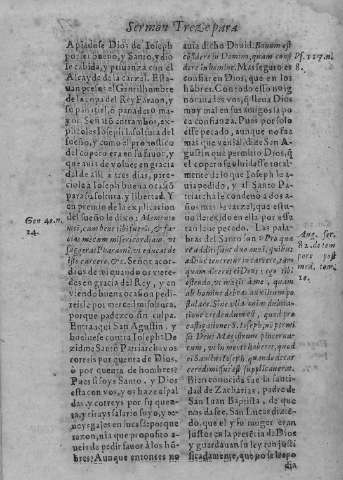 Sermon Treze para
Apiadose Dios de Ioseph
por ser bueno, y Santo, y dio
le cabida, y priuança con el
Alcayde de la carzel. Esta-
uan presos el Gentilhombre
de la copa del Rey Faraon, y
su repostero, ò panadero ma-
yor. Soñarõ entrambos, ex-
plicoles Ioseph la soltura del
sueño, y como el pronostico
del copero era en su fauor, y
que auia de voluer en gracia
del de alli a tres dias, pire-
ciole a Ioseph buena ocasiõ
para su soltura, y libertad. Y
en premio de la explicacion
del sueño le dixo: Memento
mei, cum bene tibi fuerit, & fa-
cias mecum misericordiam, vt
suggeras Pharaoni vt educat me
de isto carcere, &c. Señor acor-
daos de mi quando os viere-
des en gracia del Rey, y en
viendo buena ocasiõ pedi-
reisle por merced mi soltura,
porque padezco sin culpa.
Entra aqui San Agustin, y
bueluese contra Ioseph: De
zidme Santo Patriarcha vos
correis por quenta de Dios,
ò por quenta de hombres?
Pues si soys Santo, y Dios
esta con vos, y os haze espal-
das, y correys por su quen-
ta, y si rays salario suyo, y co-
meys gages en su casa: porque
razon, ni a que proposito a-
ueis de pedir fauor à los hõ-
bres? Aunque entonces no
auia dicho Dauid: Bonum est
cõfidere in Domino, quam confi-
dere in homine. Mas seguro es
confiar en Dios, que en los
hõbres. Con todo esso no ig-
norauades vos, q̃ lleua Dios
muy mal en sus amigos la po-
ca confiança. Pues por solo
esse pecado, aunque no fue
mas que venial, dize San A-
gustin que permitio Dios, q̃
el copero se oluidasse total-
mente de lo que Ioseph le a-
uia pedido, y al Santo Pa-
triarcha le condenò a dos a-
nos mas de carzel, que estu-
uo detenido en ella por essa
tan leue pecado. Las pala-
bras del Santo son: Propterea
reddidisse duo anni, quibus
a Deo teneretur in carcere, tam-
quam diceret ei Deus: ego tibi
ostendo, vt magis à me, quam
ab homine debeas auxilium po-
stulare. Sine vlla enim dubita-
tione credendum est, quod pro
castigatione S. Ioseph, vt permi-
sit Deus Magistrum pincerna-
rum, vt immemor haberet, quod
ei Sanctus Ioseph quando à car-
cere dimissus est supplicauerat.
Bien conocida fue la santi-
dad de Zacharias, padre de
San Iuan Baptista, de que
nos da fee, San Lucas dizie-
do, que el y su muger eran
justos en la presẽcia de Dios
y guardauan su ley con justi-
ficadamente, que no se les po
dia
Ps. 117. nu.
8.
Gen 40. n.
14.
Aug. ser.
82. de tem
pore post
med. tom.
10.